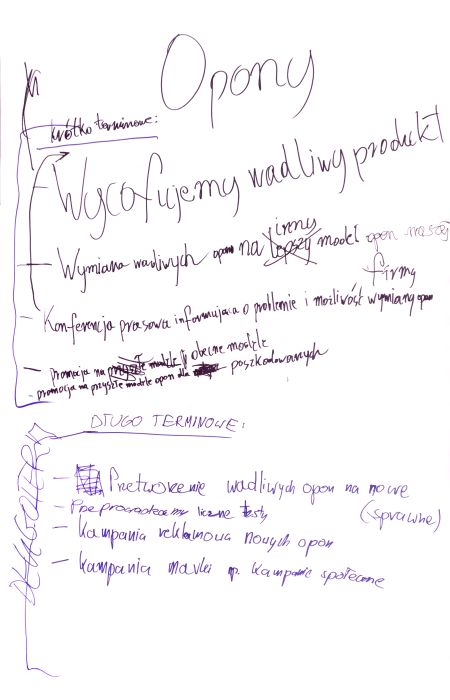 Opony
Krótko terminowe:
- Wycofujemy wadliwy produkt
- Wymiana wadliwych opon na inny model opon naszej
firmy
- Konferencja prasowa informująca o problemie i możliwość wymiany opon
- Promocja na obecne modele
- promocja na przyszłe modele opon dla poszkodowanych
DŁUGO TERMINOWE:
- Przetworzenie wadliwych opon na nowe
(sprawne)
- Przeprowadzamy liczne testy
- Kampania reklamowa nowych opon
- Kampania marki np. kampanie społeczne